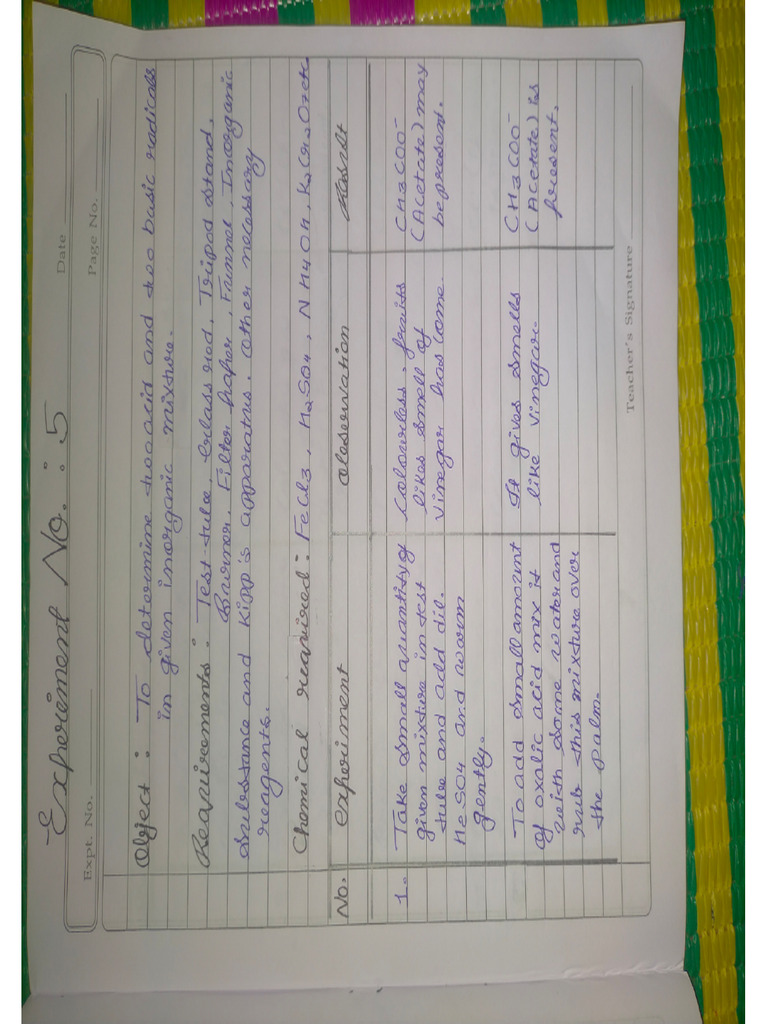 Experiment No. : 5
Date
Expt. No.
Page No.
Object : To determine two acid and two basic radicals
in given inorganic mixture.
Requirements : Test-tube, Glass rod, Tripod stand,
Burnor, Filter paper, Funnel, Inorganic
substance and Kipp's apparatus. Other necessary
reagents.
Chemical required : FeCl3, H2SO4, NH4OH, K2Cr2O7 etc.
No. experiment observation Result
1. Take small quantity of colourless, fruits CH3COO-
given mixture in test likes smell of (Acetate) may
tube and add dil. vinegar has come. be present.
H2SO4 and warm
gently.
To add small amount It gives smells CH3COO-
of oxalic acid mix it like vinegar. (Acetate) is
with some water and present.
rub this mixture over
the palm.
Teacher's Signature